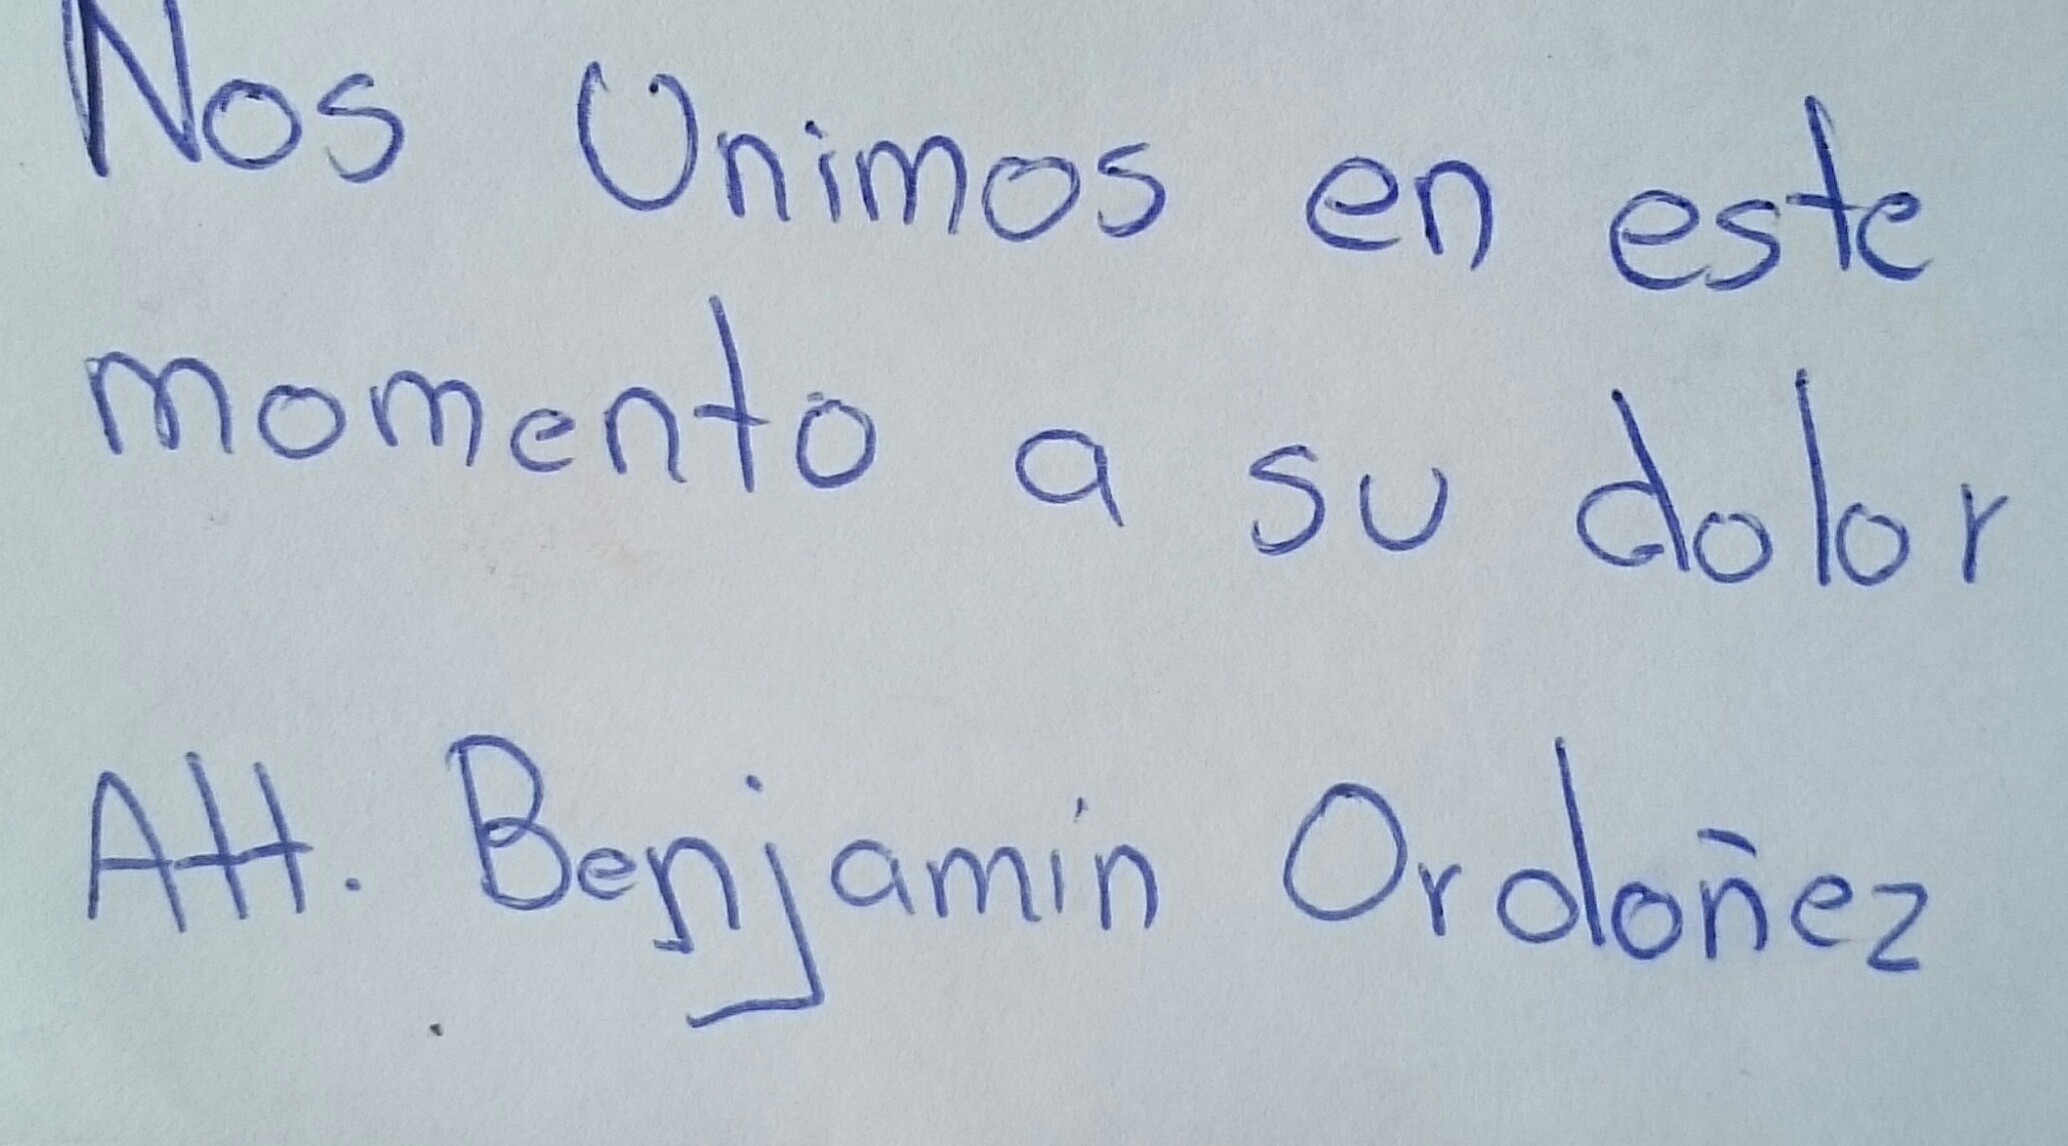 Nos Unimos en este
momento a su dolor
Att. Benjamin Ordoñez